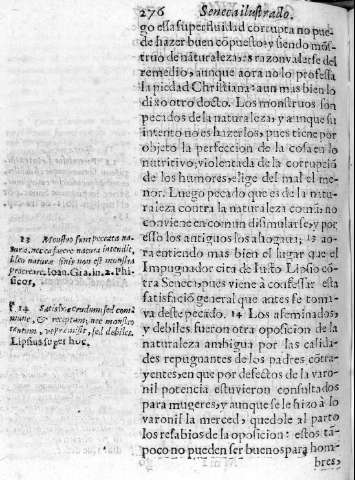 276 Seneca ilustrado.
go essa superfluidad corrupta no pue-
de hazer buen cõpuesto, y siendo mõs-
truo de naturaleza, es razon valarse del
remedio, aunque aora no lo professa
la piedad Christiana: aun mas bien lo
dixo otro docto. Los monstruos son
pecados de la naturaleza, y aunque su
intento no es hazerlos, pues tiene por
objeto la perfeccion de la cosa en lo
nutritivo, violentada de la corrupciõ
de los humores, elige del mal el me-
nor. Luego pecado que es de la natu-
raleza contra la naturaleza comũ: no
conviene en comun disimularse, y por
esso los antiguos los ahogauã; 13 ao-
ra entiendo mas bien el lugar que el
Impugnador cita de Iusto Lipsio cõ-
tra Seneca, pues viene à confessar esta
satisfació general que antes se tomi-
va deste pecado. 14 Los afeminados,
y debiles fueron otra oposicion de la
naturaleza ambigua por las calida-
des repugnantes de los padres cõtra-
yentes, en que por defectos de la varo-
nil potencia estuvieron consultados
para mugeres, y aunque se le hizo à lo
varonil la merced, quedole al parto
los resabios de la oposicion: estos tã-
poco no pueden ser buenos para hom-
bres,
13 Monstra sunt peccata na-
turæ, nec ea fuere natura intendit,
licet natura finis non est monstra
procreare. Ioan. Gra. in. 2. Phi-
sicos.
14 Satis crudum sed com
mune, & receptum, nec monstra
tantum, repræmisit, sed debiles.
Lipsius super hoc.